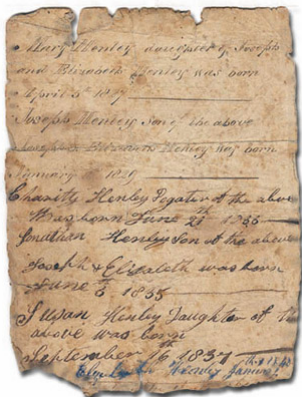 Mary Henley daughter of Joseph
and Elizabeth Henley was born
April 5th
Joseph Henley Son of the above
Joseph & Elizabeth Henley was born
January 1829
Charity Henley at the above
was born June 21th 1833
Jonathan Henley Son at the above
Joseph & Elizabeth was born
June 8 1835
Susan Henley Daughter of the
above was born
September 16th 1837
Henley January